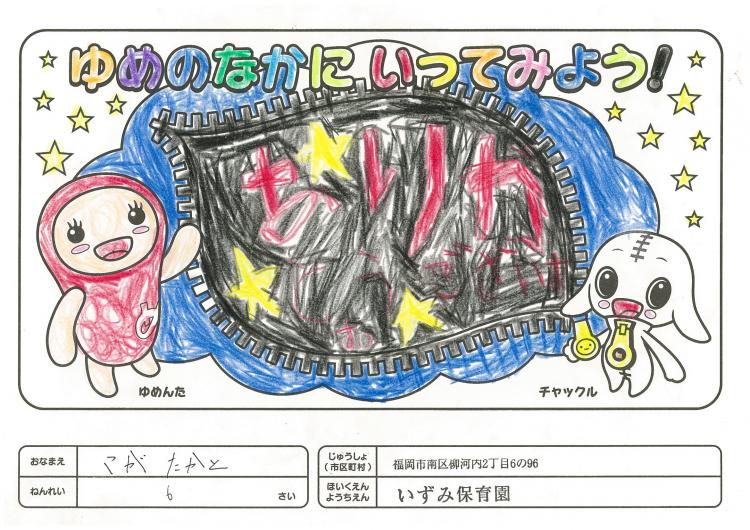 ゆめのなかに いってみよう!
ゆめんた
チャックル
おなまえ こが たかと
ねんれい 6 さい
じゅうしょ
(市区町村) 福岡市南区柳河内2丁目6の96
ほいくえん
ようちえん いずみ保育園